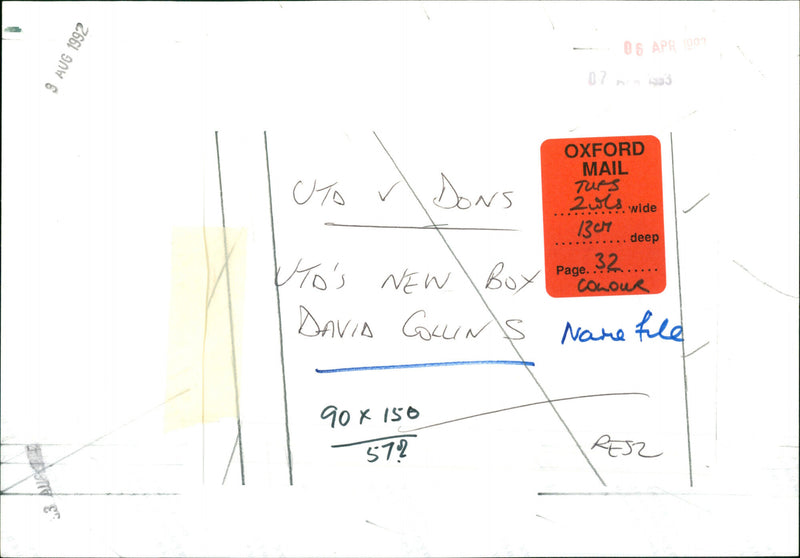 3 AUG 1992
06 APR 1993
07 1993
UTD V DONS
UTD'S NEW BOY
DAVID COLLINS
OXFORD
MAIL
TUES
2 cols wide
13cm deep
Page 32
COLOUR
Name file
90 x 150
57%
3 AUG